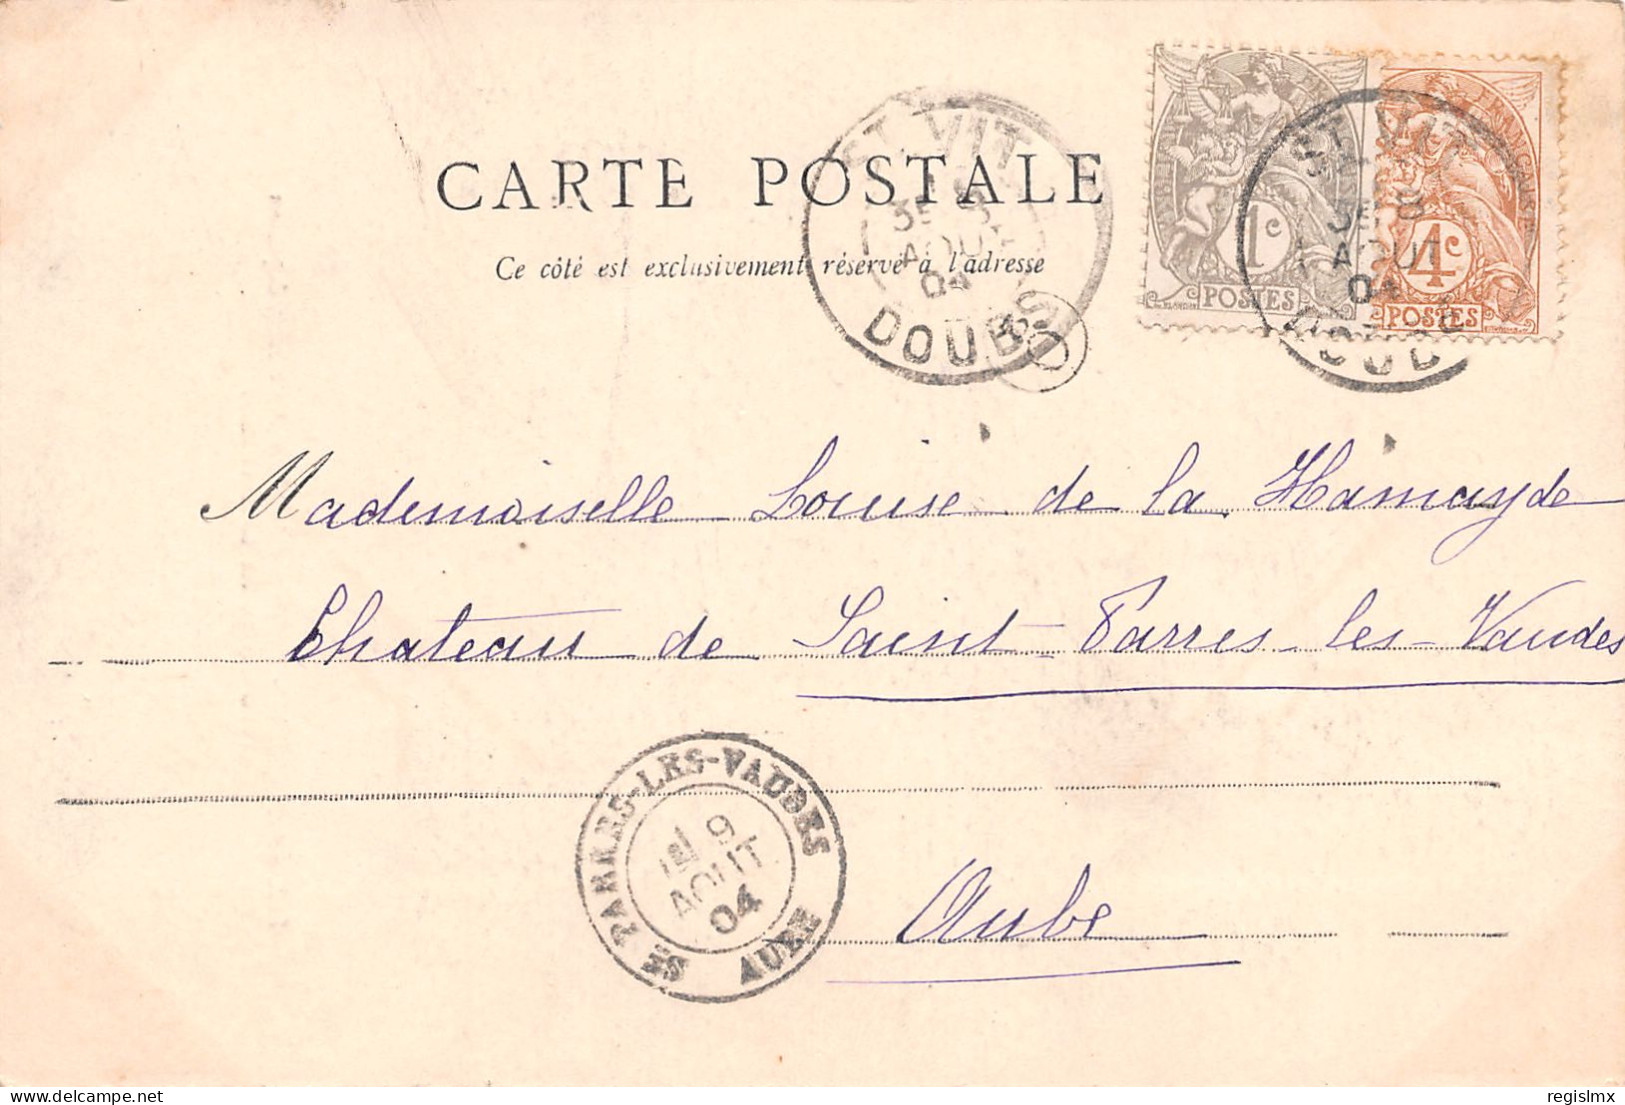 CARTE POSTALE
Ce côté est exclusivement réservé à l'adresse
ST VIT
3E 8
AOUT
04
DOUBS
1c
POSTES
4c
POSTES
ST VIT
3E 8
AOUT
04
DOUBS
Mademoiselle Louise de la Hamayde
Chateau de Saint-Parres-les-Vaudes
ST PARRES-LES-VAUDES
9
AOUT
04
AUBE
Aube
regislmx